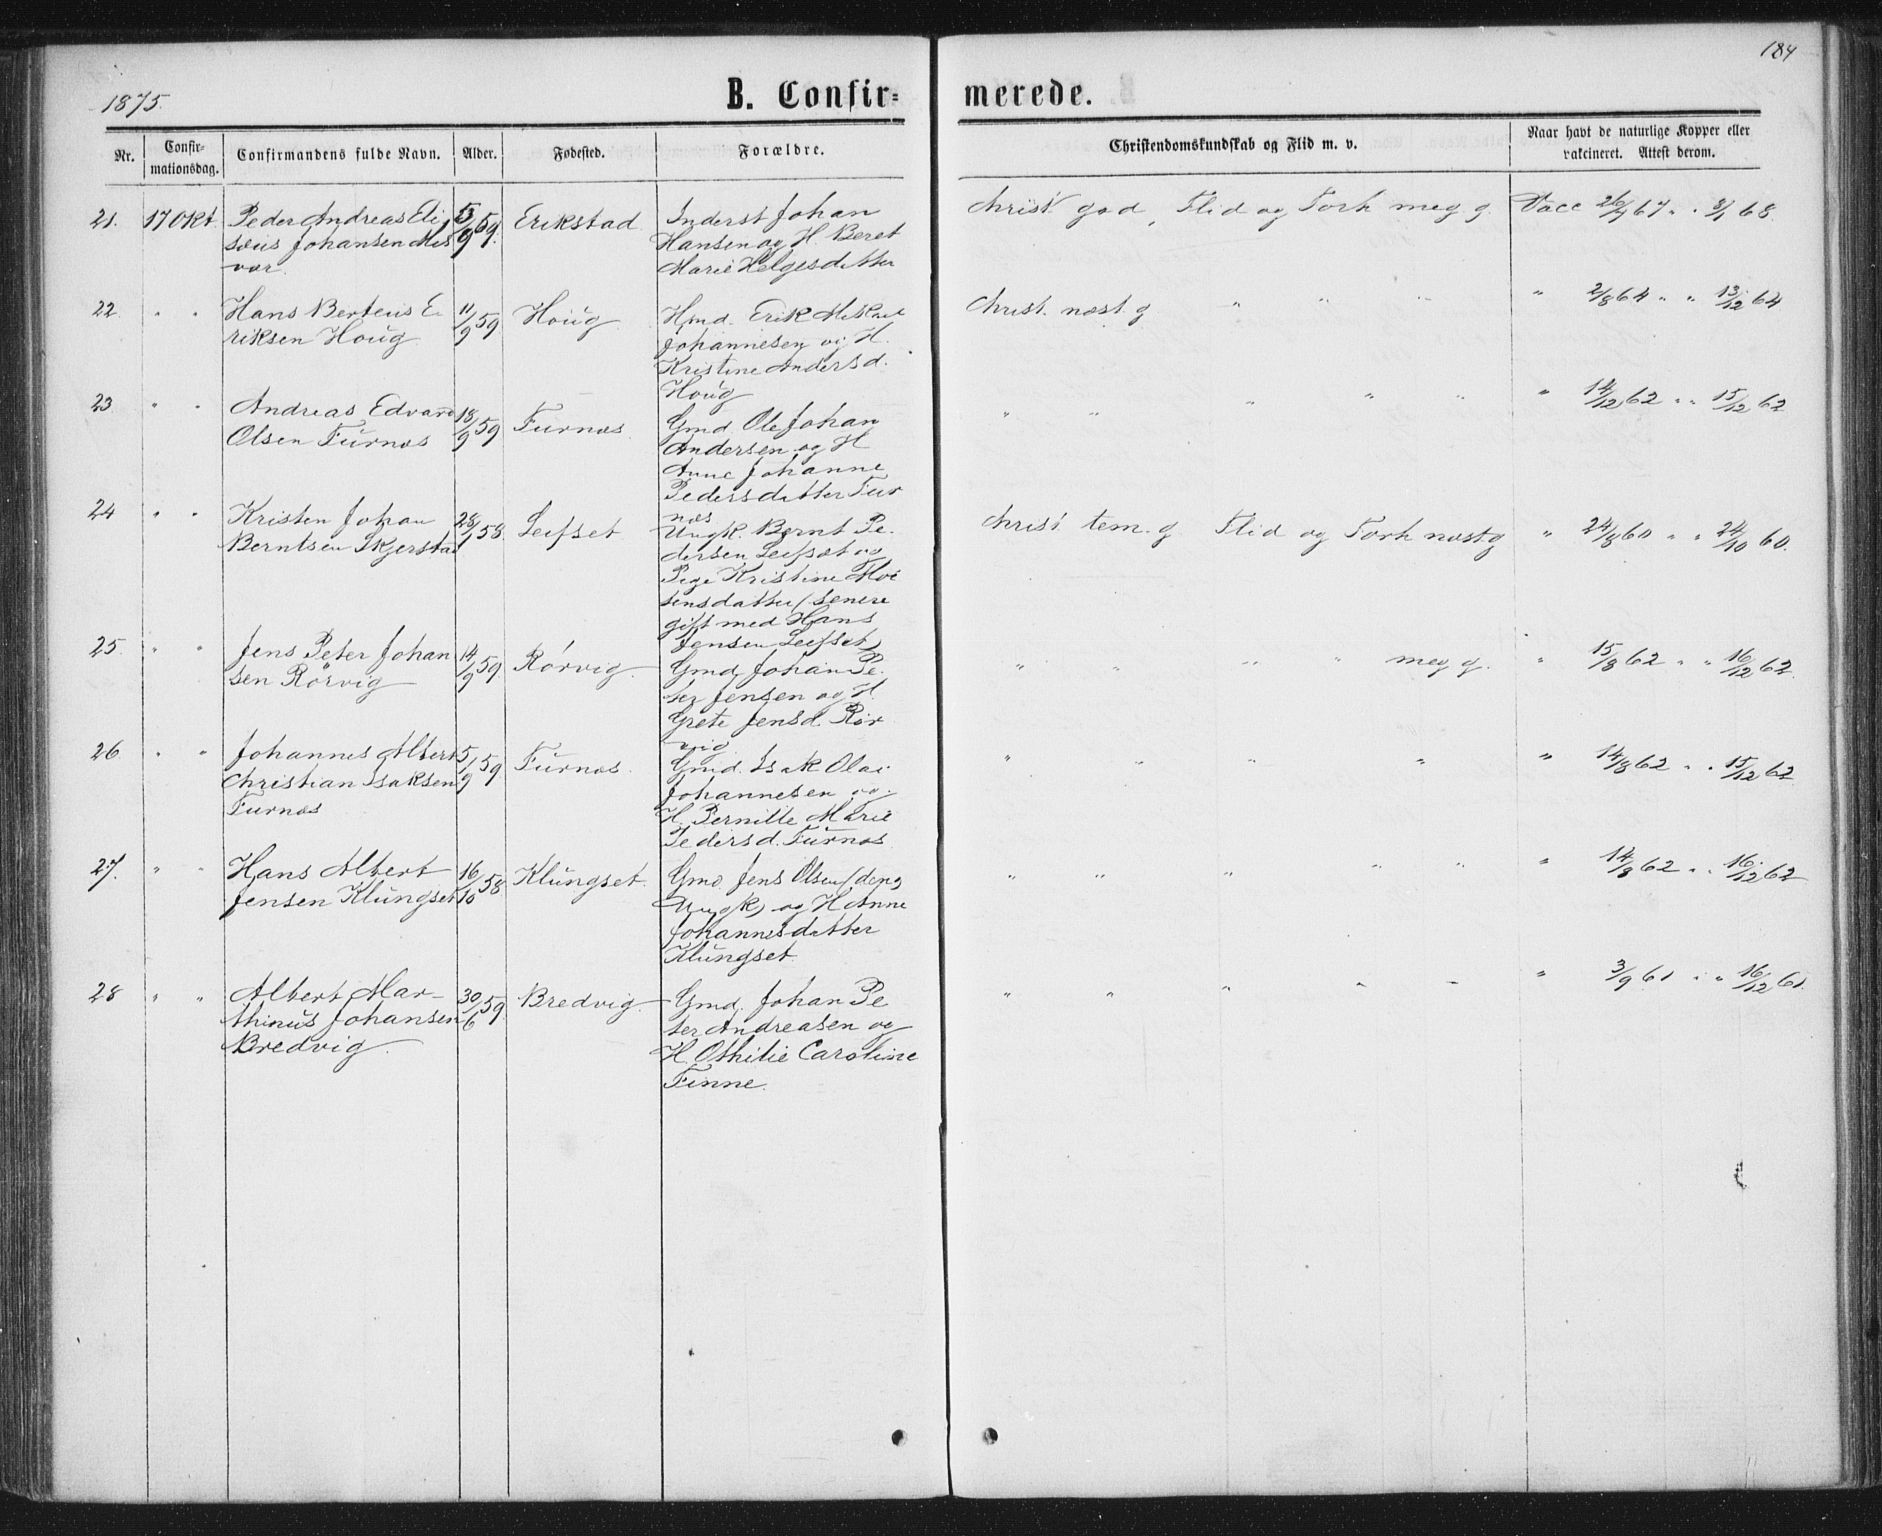 184
1875.
B. Confir= merede.
Nr.
Confir-
mationsdag.
Confirmandens fulde Navn.
Alder.
Fødested.
Forældre.
Christendomskundskab og Flid m. v.
Naar havt de naturlige Kopper eller
vakcineret. Attest derom.
21. 17 Okt. Peder Andreas Eli
sæus Johansen Mis
vær.
5/9 59. Erikstad
Inderst Johan
Hansen og H. Beret
Marie Helgesdatter
Christ. god, Flid og Forh meg g. Vacc 26/7 67 " " 3/1 68.
22. " " Hans Berteus E
riksen Houg
11/9 59 Houg
Hmd. Erik
Johannesen og H.
Kristine Andersd.
Houg
Christ. næst. g " " " " 2/8 64 " " 13/12 64
23 " " Andreas Edvard
Olsen Furnæs
18/9 59 Furnæs.
Gmd. Ole Johan
Andersen og H
Anne Johanne
Pedersdatter Fur
næs
" " " " " " 14/12 62 " " 15/12 62
24 " " Kristen Johan
Berntsen Skjerstad
28/1 58. Leifset
Ungk. Bernt Pe-
dersen Leifset og
Pige Kristine Moe
sensdatter (senere
gift med Hans
Jensen Leifset)
Christ. tem. g Flid og Forh næst. g " 24/8 60 " " 24/10 60.
25 " " Jens Peter Johan
sen Rørvig
14/9 59 Rørvig.
Gmd. Johan Pe-
ter Jensen og H.
Grete Jensd. Rør
vig
" " " " meg g. " 15/8 62 " " 16/12 62.
26 " " Johannes Albert
Christian Isaksen
Furnæs
5/9 59 Furnæs.
Gmd. Isak Olai
Johannesen og
H. Pernille Marie
Pedersd. Furnæs
" " " " " 14/8 62 " " 15/12 62
27. " " Hans Albert
Jensen Klungset
16/10 58 Klungset.
Gmd. Jens Olsen (den
Ungk) og H. Anne
Johannesdatter
Klungset
" " " " " " 14/8 62 " " 16/12 62
28 " " Albert Mar-
thinus Johansen
Bredvig.
30/6 59. Bredvig.
Gmd. Johan Pe
ter Andreasen og
H. Othilie Caroline
Finne.
" " " " " " 3/9 61 " " 16/12 61.